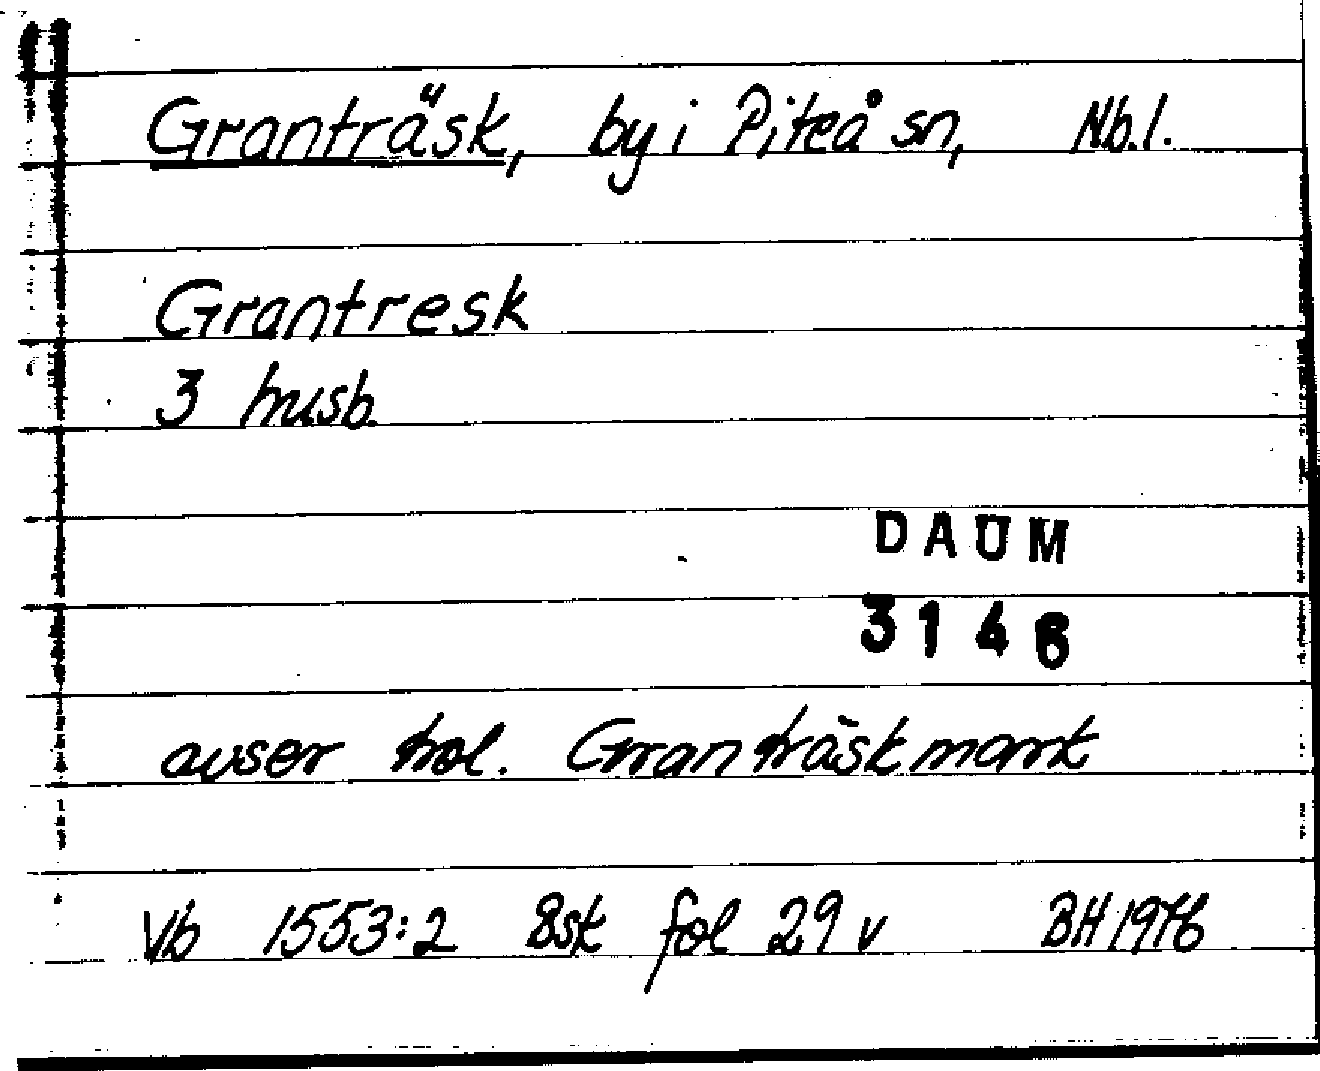 Granträsk, by i Piteå sn, Nb.l.
Grantresk
3 husb.
DAUM
3146
avser trol. Granträskmark
Vb 1553:2 Bsk fol 29 v BH 1976